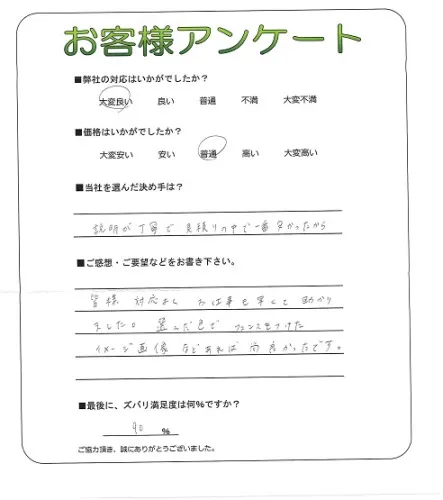 お客様アンケート
■弊社の対応はいかがでしたか？
大変良い 良い 普通 不満 大変不満
■価格はいかがでしたか？
大変安い 安い 普通 高い 大変高い
■当社を選んだ決め手は？
説明が丁寧で見積りの中で一番安かったから
■ご感想・ご要望などをお書き下さい。
皆様 対応よし お仕事も早くて 助かり
ました。選んだ色で フェンスをつけた
イメージ画像などあれば 尚良かったです。
■最後に、ズバリ満足度は何％ですか？
90 ％
ご協力頂き、誠にありがとうございました。